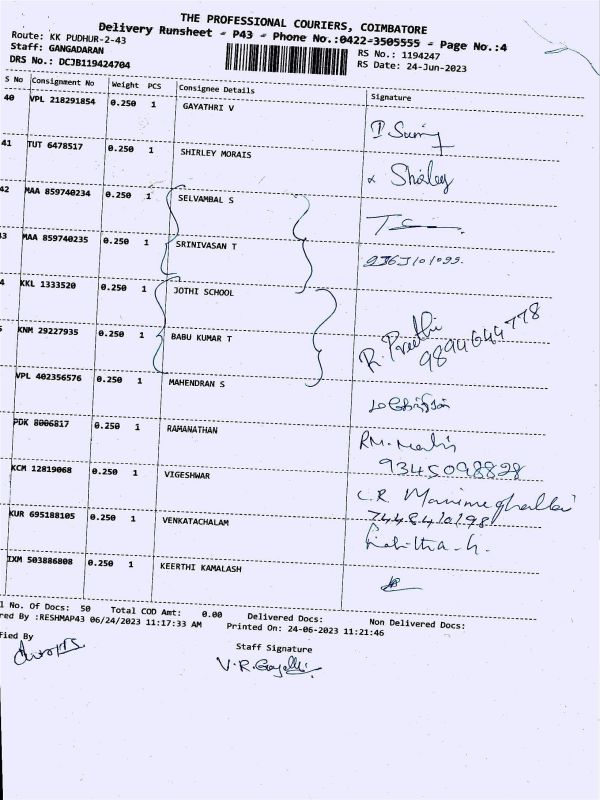 THE PROFESSIONAL COURIERS, COIMBATORE
Delivery Runsheet - P43 - Phone No.:0422-3505555 - Page No.:4
Route: KK PUDHUR-2-43
Staff: GANGADARAN
DRS No.: DCJB119424704
RS No.: 1194247
RS Date: 24-Jun-2023
S No Consignment No Weight PCS Consignee Details Signature
40 VPL 218291854 0.250 1 GAYATHRI V
41 TUT 6478517 0.250 1 SHIRLEY MORAIS
x Shirley
42 MAA 859740234 0.250 1 SELVAMBAL S
3 MAA 859740235 0.250 1 SRINIVASAN T
4 KKL 1333520 0.250 1 JOTHI SCHOOL
KNM 29227935 0.250 1 BABU KUMAR T
R. Preethi
9894644778
VPL 402356576 0.250 1 MAHENDRAN S
PDK 8006817 0.250 1 RAMANATHAN
9345098828
KCM 12819068 0.250 1 VIGESHWAR
KUR 695188105 0.250 1 VENKATACHALAM
IXM 503886808 0.250 1 KEERTHI KAMALASH
l No. Of Docs: 50 Total COD Amt: 0.00 Delivered Docs: Non Delivered Docs:
red By :RESHMAP43 06/24/2023 11:17:33 AM Printed On: 24-06-2023 11:21:46
fied By
Staff Signature